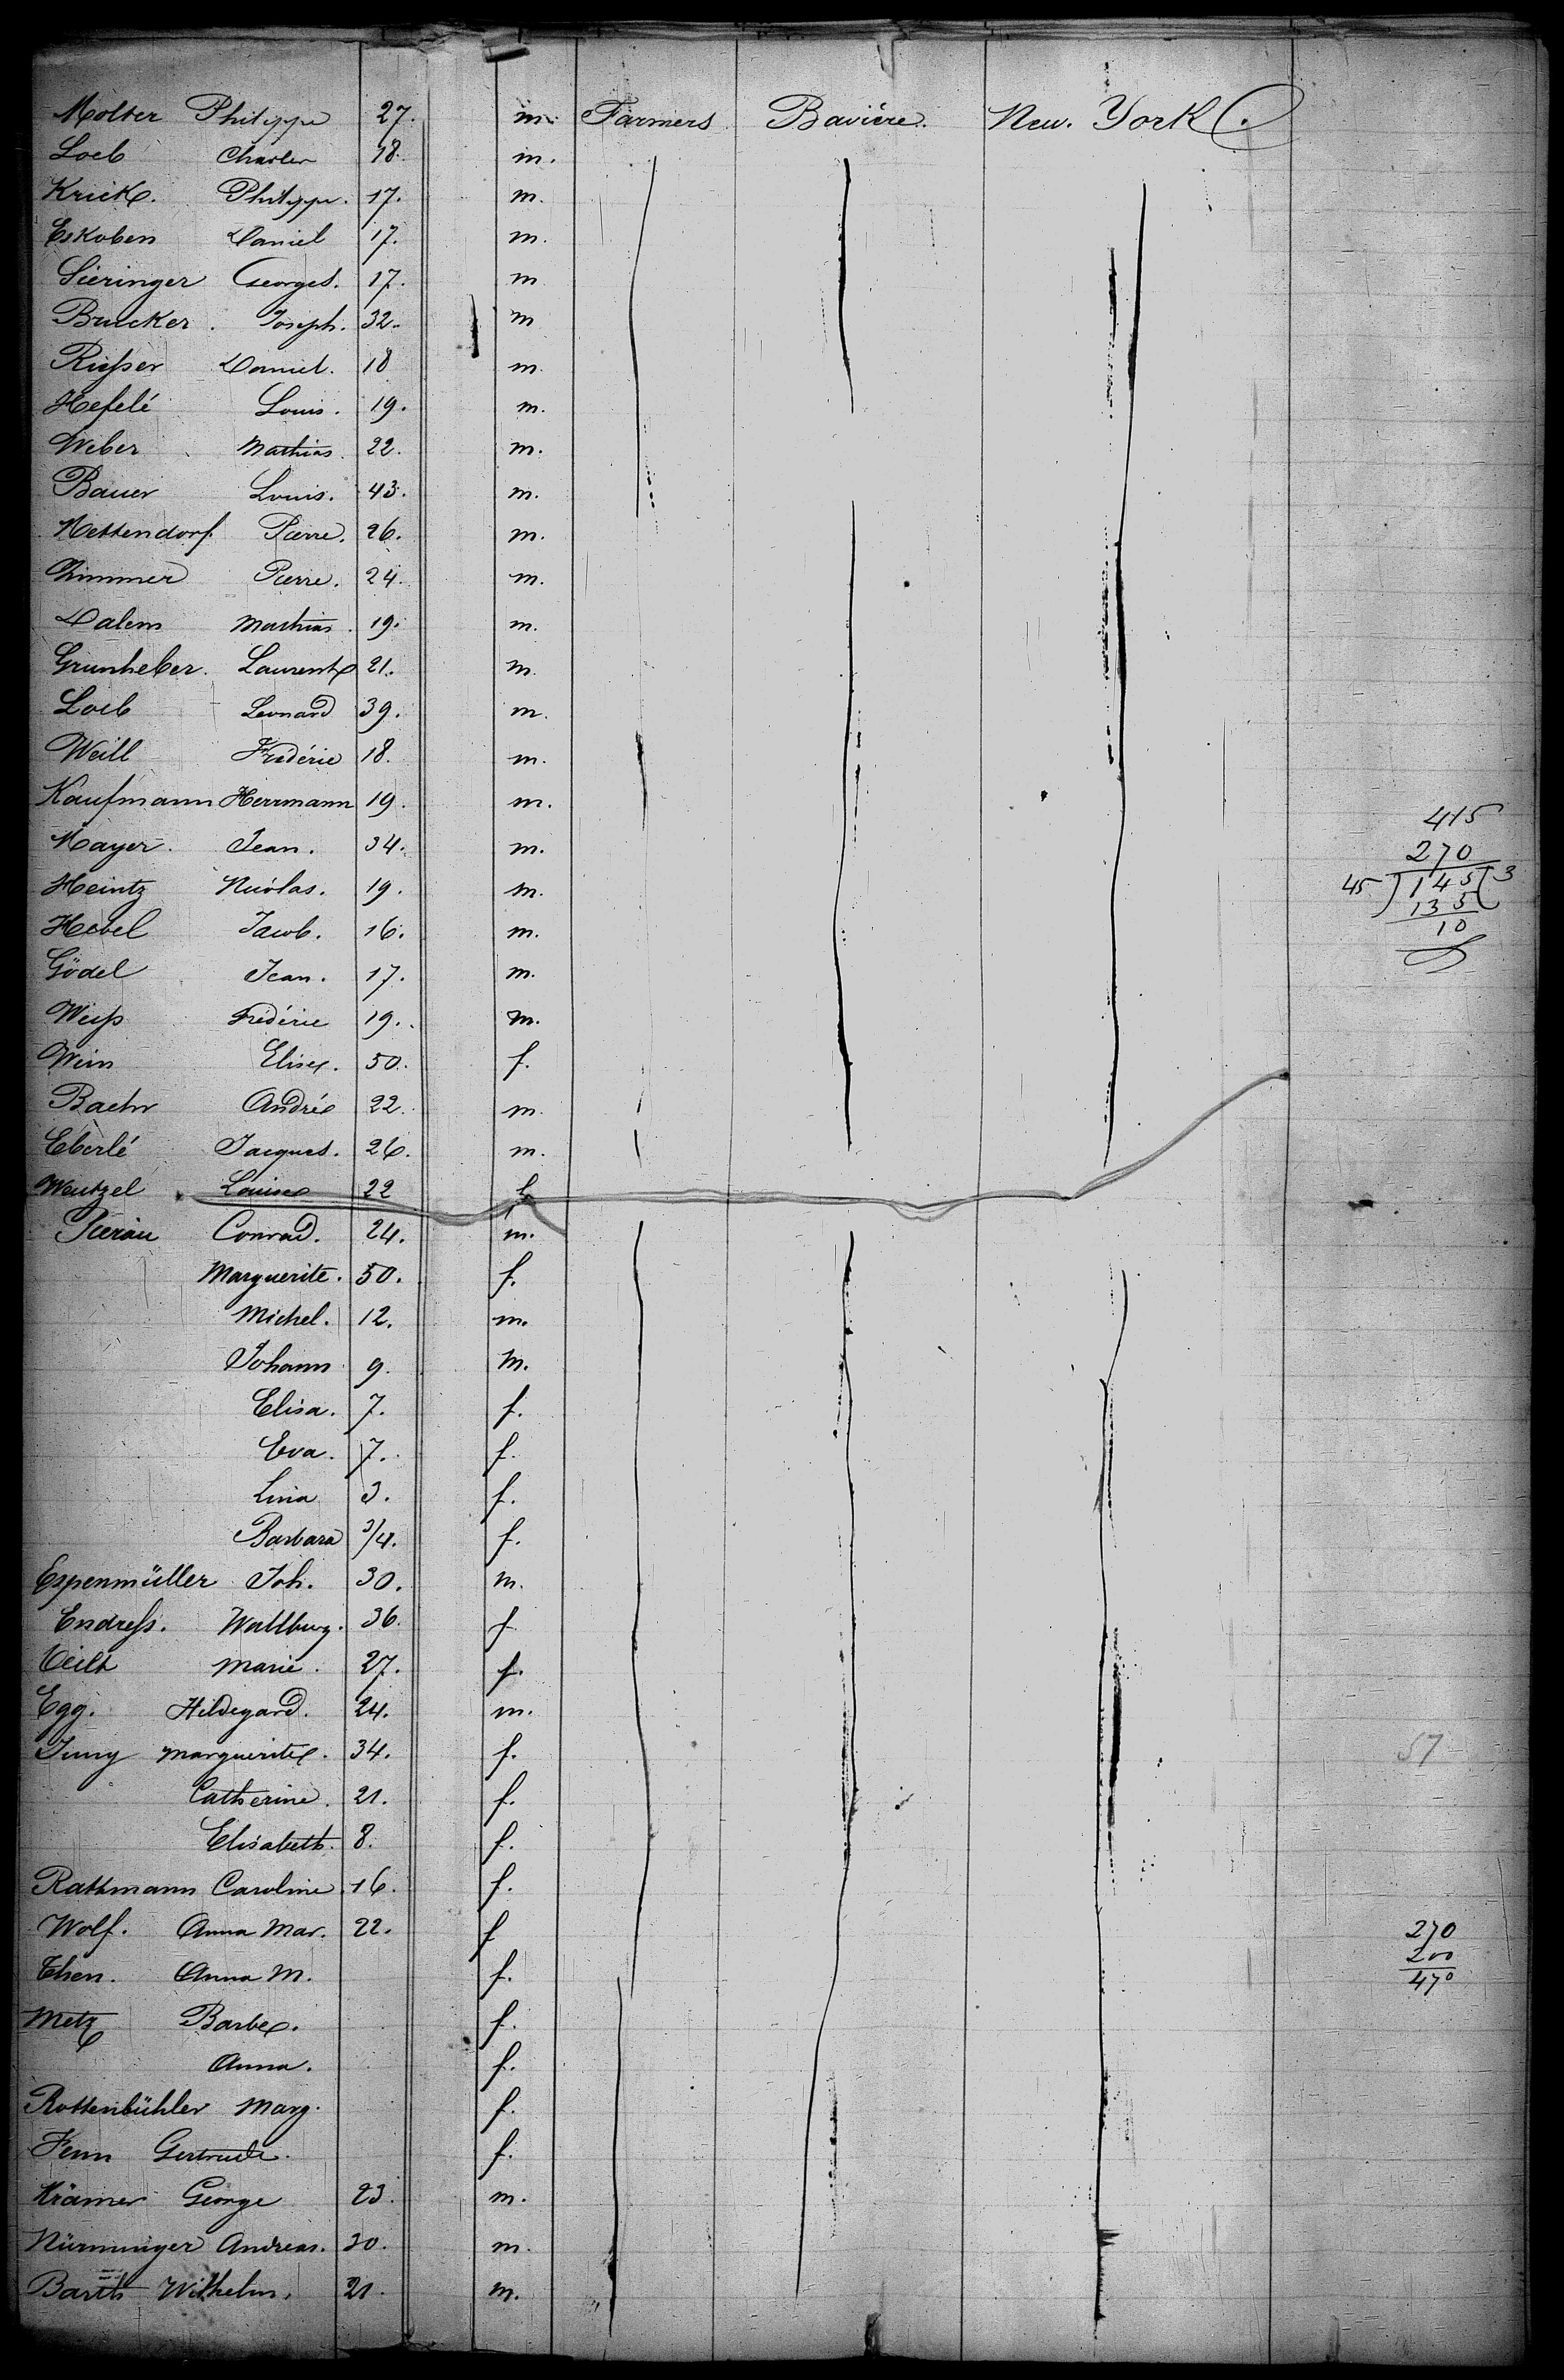 Molter Philippe 27. m. Farmers. Bavière. New. York.
Loeb Charles 18. m.
Krick. Philippe. 17. m.
Eskoben Daniel 17. m.
Sieringer Georges. 17. m
Brucker. Joseph. 32. m
Rießer Daniel. 18 m.
Hefelé Louis. 19. m.
Weber Mathias. 22. m.
Bauer Louis. 43. m.
Mettendorf Pierre. 26. m.
Zimmer Pierre. 24. m.
Dalem Mathias. 19. m.
Grunheber. Laurent 21. m.
Loeb Leonard 39. m.
Weill Fréderic 18. m.
Kaufmann Herrmann 19. m.
415
Mayer. Jean. 34. m.
270
Heintz Nicolas. 19. m.
45 ) 145 ( 3
135
Hebel Jacob. 16. m.
10
Gödel Jean. 17. m.
Weiß Fréderic 19. m.
Wein Elise. 50. f.
Baehr André 22. m.
Eberlé Jacques. 26. m.
Wentzel Louise 22 f
Pierau Conrad. 24. m.
Marguerite. 50. f.
Michel. 12. m.
Johann 9. m.
Elisa. 7. f.
Eva. 7. f.
Lina 3. f.
Barbara 3/4. f.
Espenmüller Joh. 30. m.
Endreß. Wallburg. 36. f
Veilt Marie. 27. f.
Egg. Hildegard. 24. m.
Jung Marguerite. 34. f. 57
Catherine. 21. f.
Elisabeth. 8. f.
Rathmann Caroline. 16. f.
Wolf. Anna Mar. 22. f
270
200
Then. Anna M. f.
470
Metz Barbe. f.
Anna. f.
Rottenbühler Marg. f.
Fenn Gertrude. f.
Krämer George 23. m.
Nürminger Andreas. 30. m.
Barth Wilhelm. 21. m.